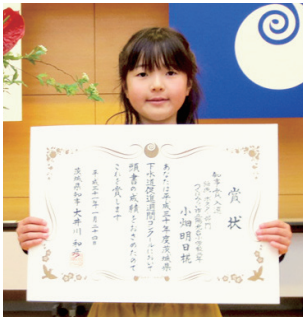 賞状
小畑明日梳
あなたは平成三十年度茨城県
下水道促進週間コンクールにおいて
頭書の成績をおさめたので
これを賞します
平成三十一年一月二十四日
茨城県知事 大井川和彦